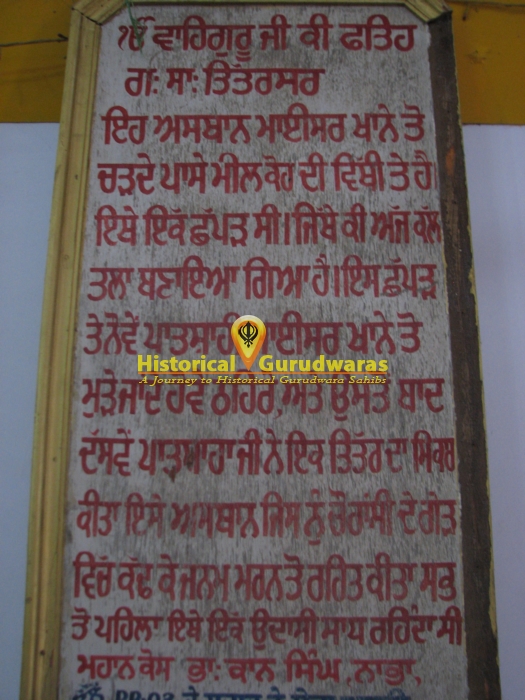 ੴ ਵਾਹਿਗੁਰੂ ਜੀ ਕੀ ਫਤਿਹ
ਗੁ: ਸਾ: ਤਿੱਤਰਸਰ
ਇਹ ਅਸਥਾਨ ਮਾਈਸਰ ਖਾਨੇ ਤੋ
ਚੜਦੇ ਪਾਸੇ ਮੀਲ ਕੋਹ ਦੀ ਵਿੱਥੀ ਤੇ ਹੈ
ਇਥੇ ਇਕ ਛੱਪੜ ਸੀ। ਜਿੱਥੇ ਕੀ ਅੱਜ ਕੱਲ
ਤਲਾ ਬਣਾਇਆ ਗਿਆ ਹੈ। ਇਸ ਛੱਪੜ
ਤੇ ਨੌਵੇਂ ਪਾਤਸਾਹੀ ਈਸਰ ਖਾਨੇ ਤੋ
Historical Gurudwaras
A Journey to Historical Gurudwara Sahibs
ਮੁੜੇ ਜਾਂਦੇ ਹੋਏ ਠਹਿਰੇ, ਅਤੇ ਉਸ ਤੋਂ ਬਾਦ
ਦੱਸਵੇਂ ਪਾਤਸਾਹਾ ਜੀ ਨੇ ਇਕ ਤਿੱਤਰ ਦਾ ਸਿਕਾਰ
ਕੀਤਾ ਇਸੇ ਅਸਥਾਨ ਜਿਸ ਨੂੰ ਚੌਰਾਸੀ ਦੇ ਗੇੜ
ਵਿਚੋਂ ਕੱਢ ਕੇ ਜਨਮ ਮਰਨ ਤੋ ਰਹਿਤ ਕੀਤਾ ਸਭ
ਤੋ ਪਹਿਲਾ ਇਥੇ ਇੱਕ ਉਦਾਸੀ ਸਾਧ ਰਹਿੰਦਾ ਸੀ
ਮਹਾਨ ਕੋਸ ਭਾ: ਕਾਨ ਸਿੰਘ, ਨਾਭਾ,